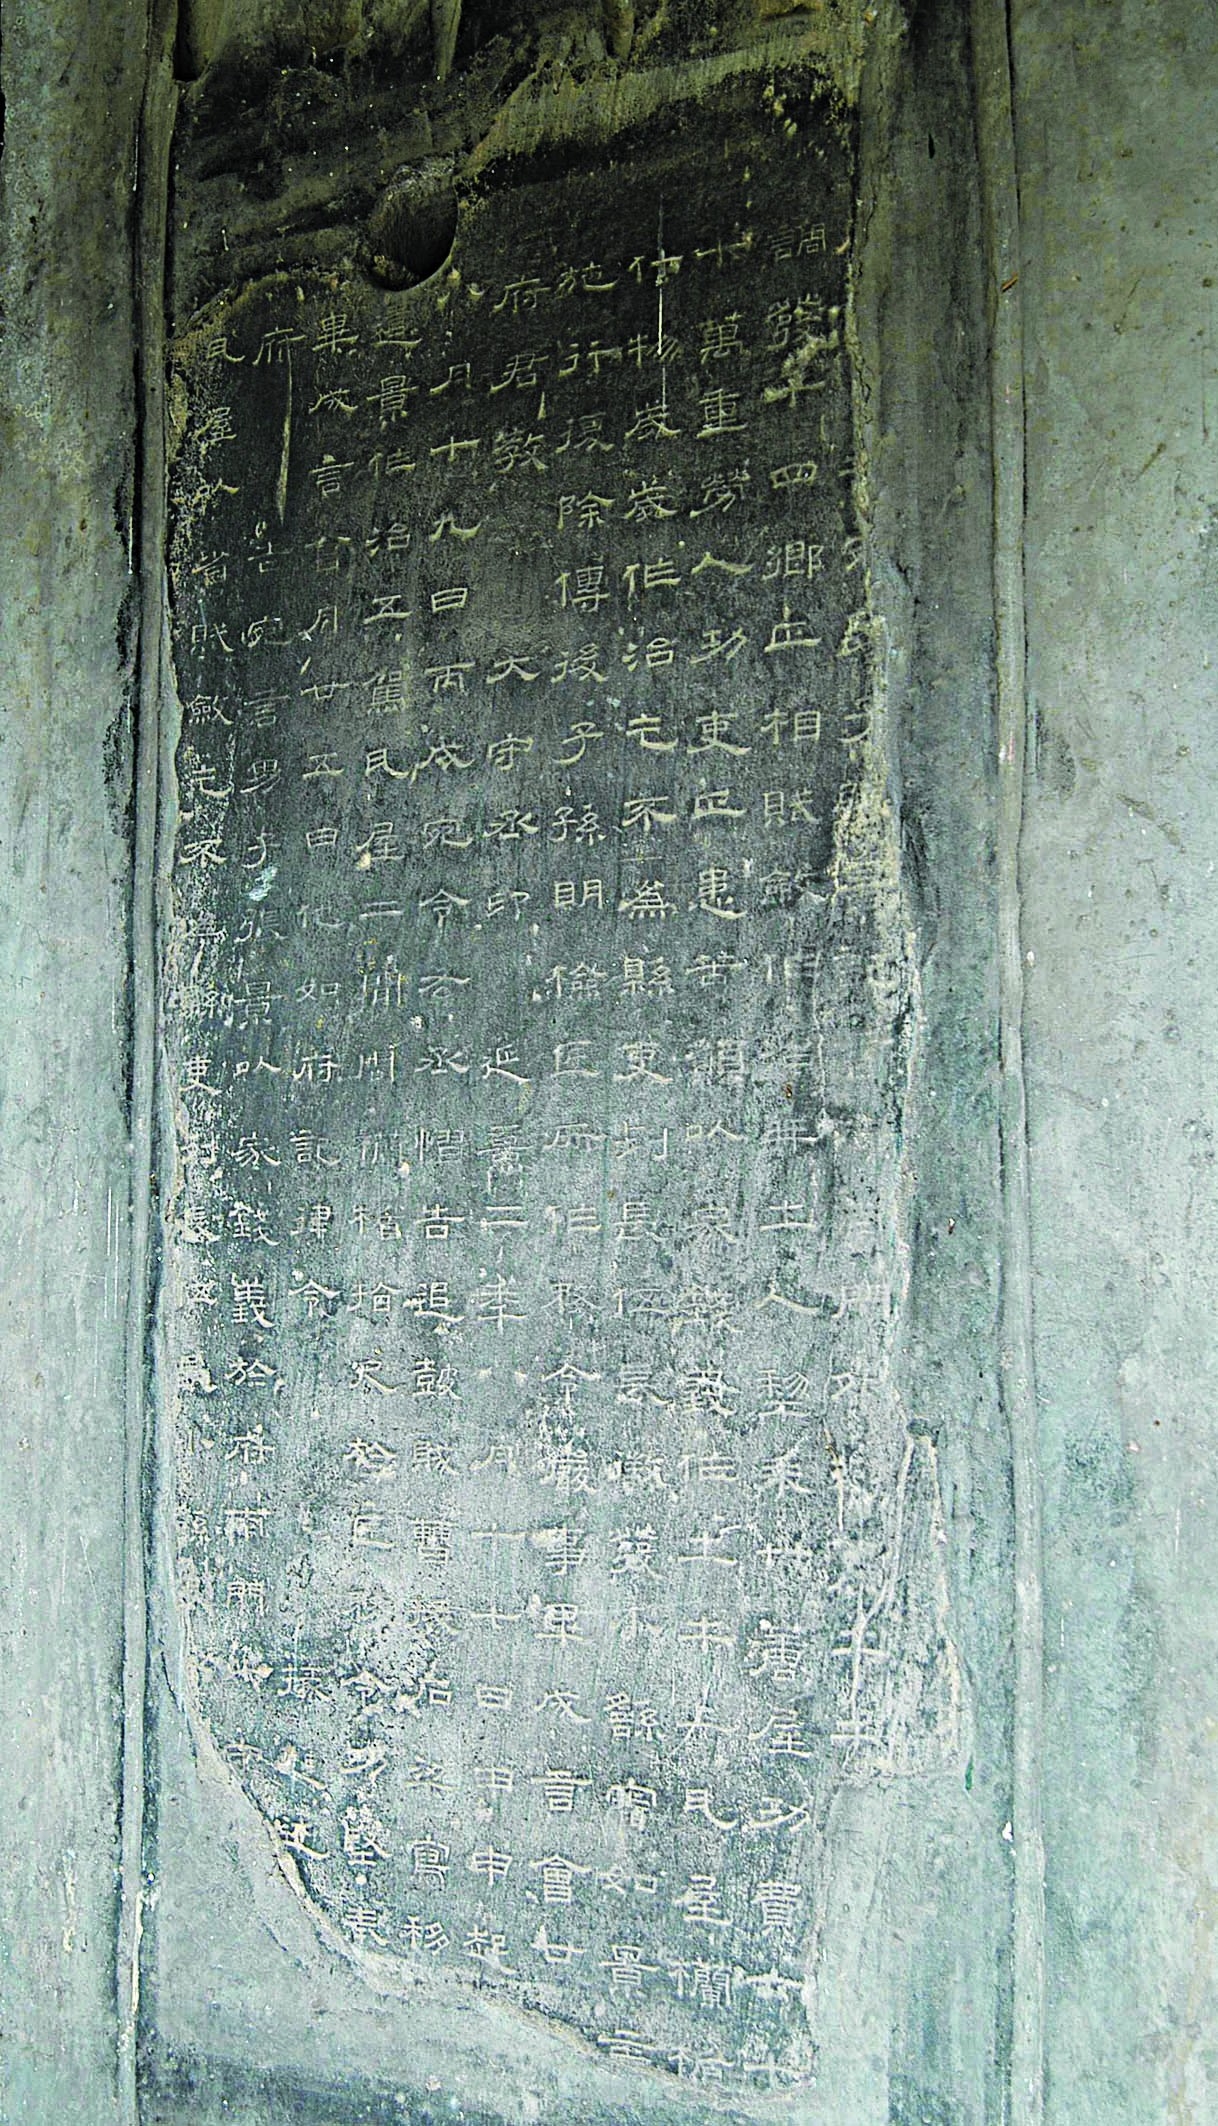 子張景記言府南門外勸農土牛
調發十四鄉正相賦斂作治并土人犁耒艹蓑屋功費六七
十萬重勞人功吏正患苦願以家錢義作土牛上瓦屋欄楯
什物歲歲作治乞不為縣吏列長伍長徵發小繇審如景言
施行復除傳後子孫明檢匠所作務令嚴事畢成言會廿
府君教 大守丞印 延熹二年八月十七日甲申起
八月十九日丙戌宛令右丞慴告追鼓賊曹掾石梁寫移
遣景作治五駕瓦屋二間周欄楯拾尺於匠務令功堅奉
畢成言會月廿五日他如府記律令 掾趙述
府告宛言男子張景以家錢義於府南門外守
瓦屋以省賦斂乞不為縣吏列長伍長小繇